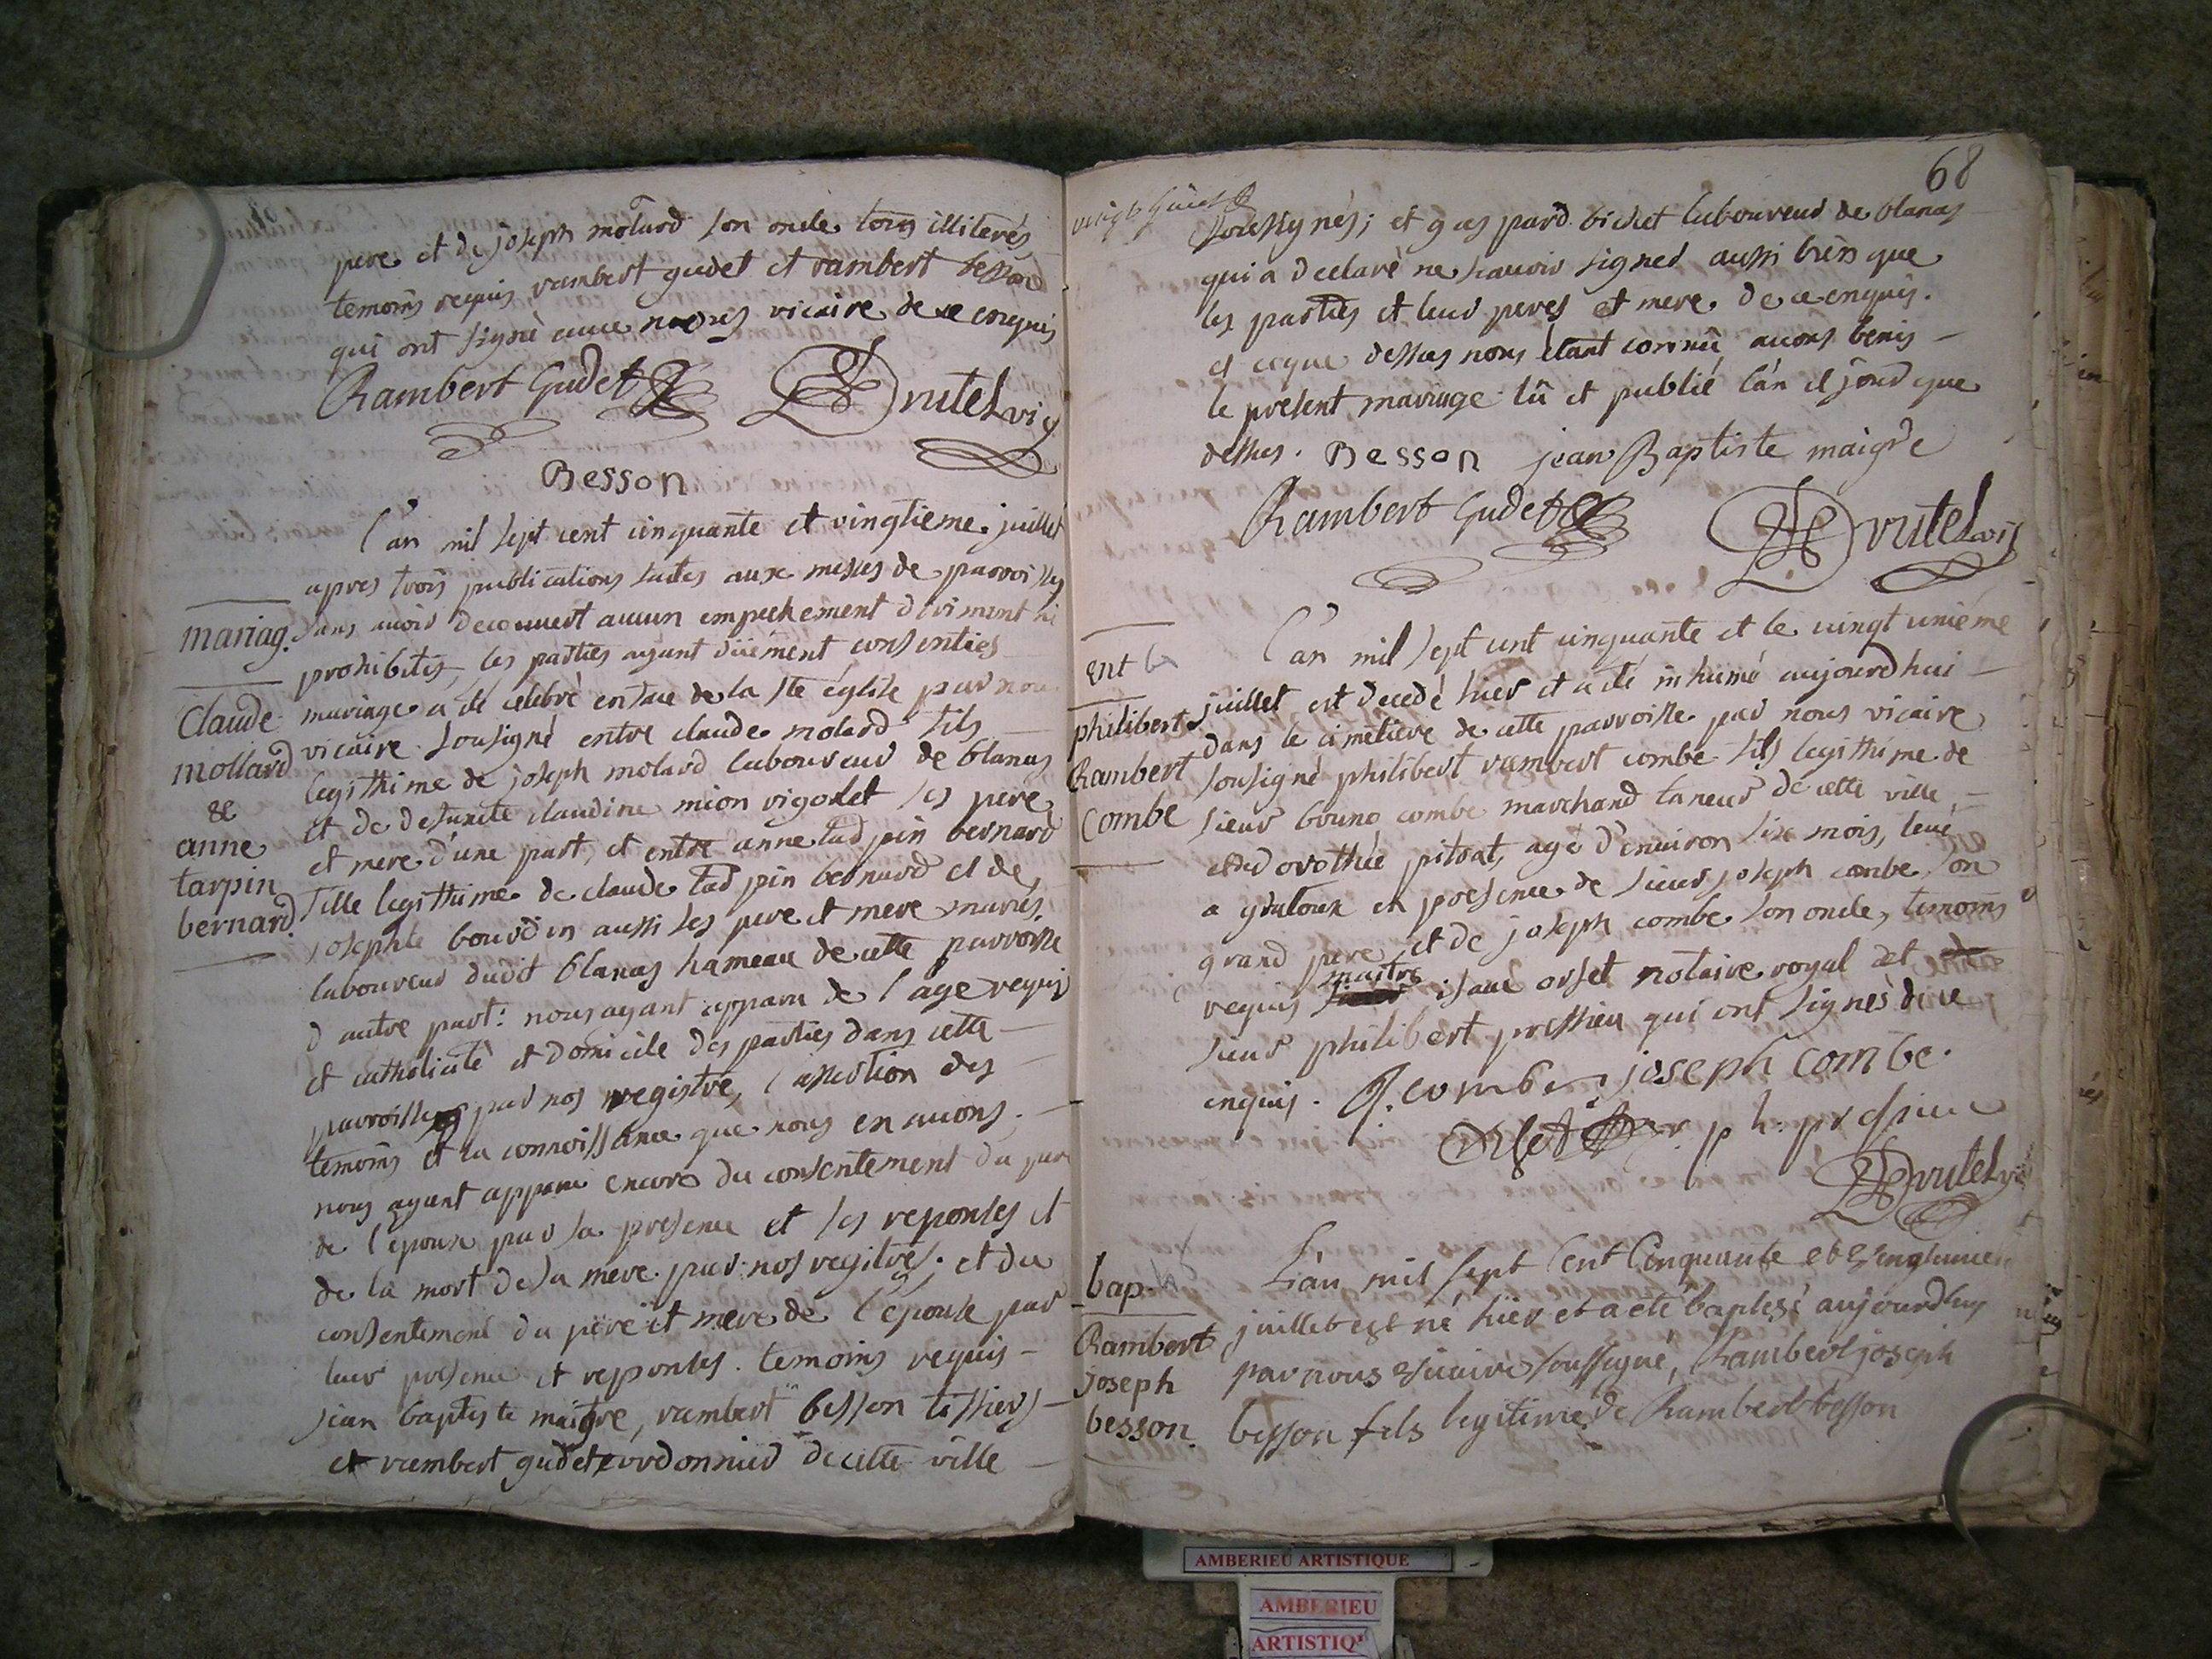 pere et de joseph molard son oncle tous illiterés
temoins requis rambert gudet et rambert besson
qui ont signé avec nous vicaire de ce enquis
Rambert Gudet Drutel vic
Besson
L'an mil sept cent cinquante et vingtieme juillet
apres trois publications faites aux messes de parroisses
sans avoir decouvert aucun empechement diriment ni
prohibitif, les parties ayant düement consenties
mariage a été célébré en face de la ste église par nous
vicaire sousigné entre claude molard fils
legisthime de joseph molard laboureur de blanas
et de defunte claudine mion vigodet ses pere
et mere d'une part, et entre anne tarpin bernard
fille legisthime de claude tarpin bernard et de
josephte bourdin aussi ses pere et mere mariés
laboureur dudit blanas hameau de cette parroisse
d'autre part: nous ayant apparu de l'âge requis
et catholicité et domicile des parties dans cette
parroisse par nos registre, l'assertion des
temoins et la connoissance que nous en avons.
nous ayant apparu encore du consentement du pere
de l'epoux par sa presence et ses reponses et
de la mort de sa mere par nos regitres; et du
consentement du pere et mere de l'epouse par
leur presence et reponses. temoins requis
jean baptiste maigre, rambert besson tissier
et rambert gudet cordonnier de cette ville
mariag.
Claude
mollard
&
anne
tarpin
bernard.
68
soussignés; et pard. bichet laboureur de blanas
qui a declaré ne scavoir signer aussi bien que
les parties et leur peres et mere de ce enquis.
et ce que dessus nous étant connû avons benis
le present mariage lû et publié l'an et jour que
dessus. Besson jean Baptiste maigre
Rambert Gudet Drutel vic
L'an mil sept cent cinquante et le vingt uniéme
juillet est decedé hier et a été inhumé aujourdhui
dans le cimetiere de cette parroisse par nous vicaire
sousigné philibert rambert combe fils legisthime de
sieur bruno combe marchand taneur de cette ville,
et de dorothée pitrat, agé d'environ six mois, levé
a gratoux en presence de sieur joseph combe son
grand pere, et de joseph combe son oncle, temoins
requis maitre isaac orset notaire royal et
sieur philibert pressieu qui ont signés de ce
enquis. J. combe joseph combe.
Orset ph. pressieu
Drutel vic
ent
philibert
Rambert
Combe
L'an mil sept Cent Cinquante et vingtunieme
juillet est né hier et a eté baptesé aujourdhuy
par nous vicaire soussigné, Rambert joseph
besson fils legitime de Rambert besson
bap.
Rambert
joseph
besson.
AMBERIEU ARTISTIQUE
AMBERIEU
ARTISTIQ